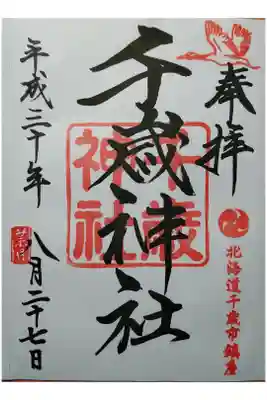 奉拝
北海道千歳市鎮座
千歳神社
千歳
神社
平成三十年
八月二十七日